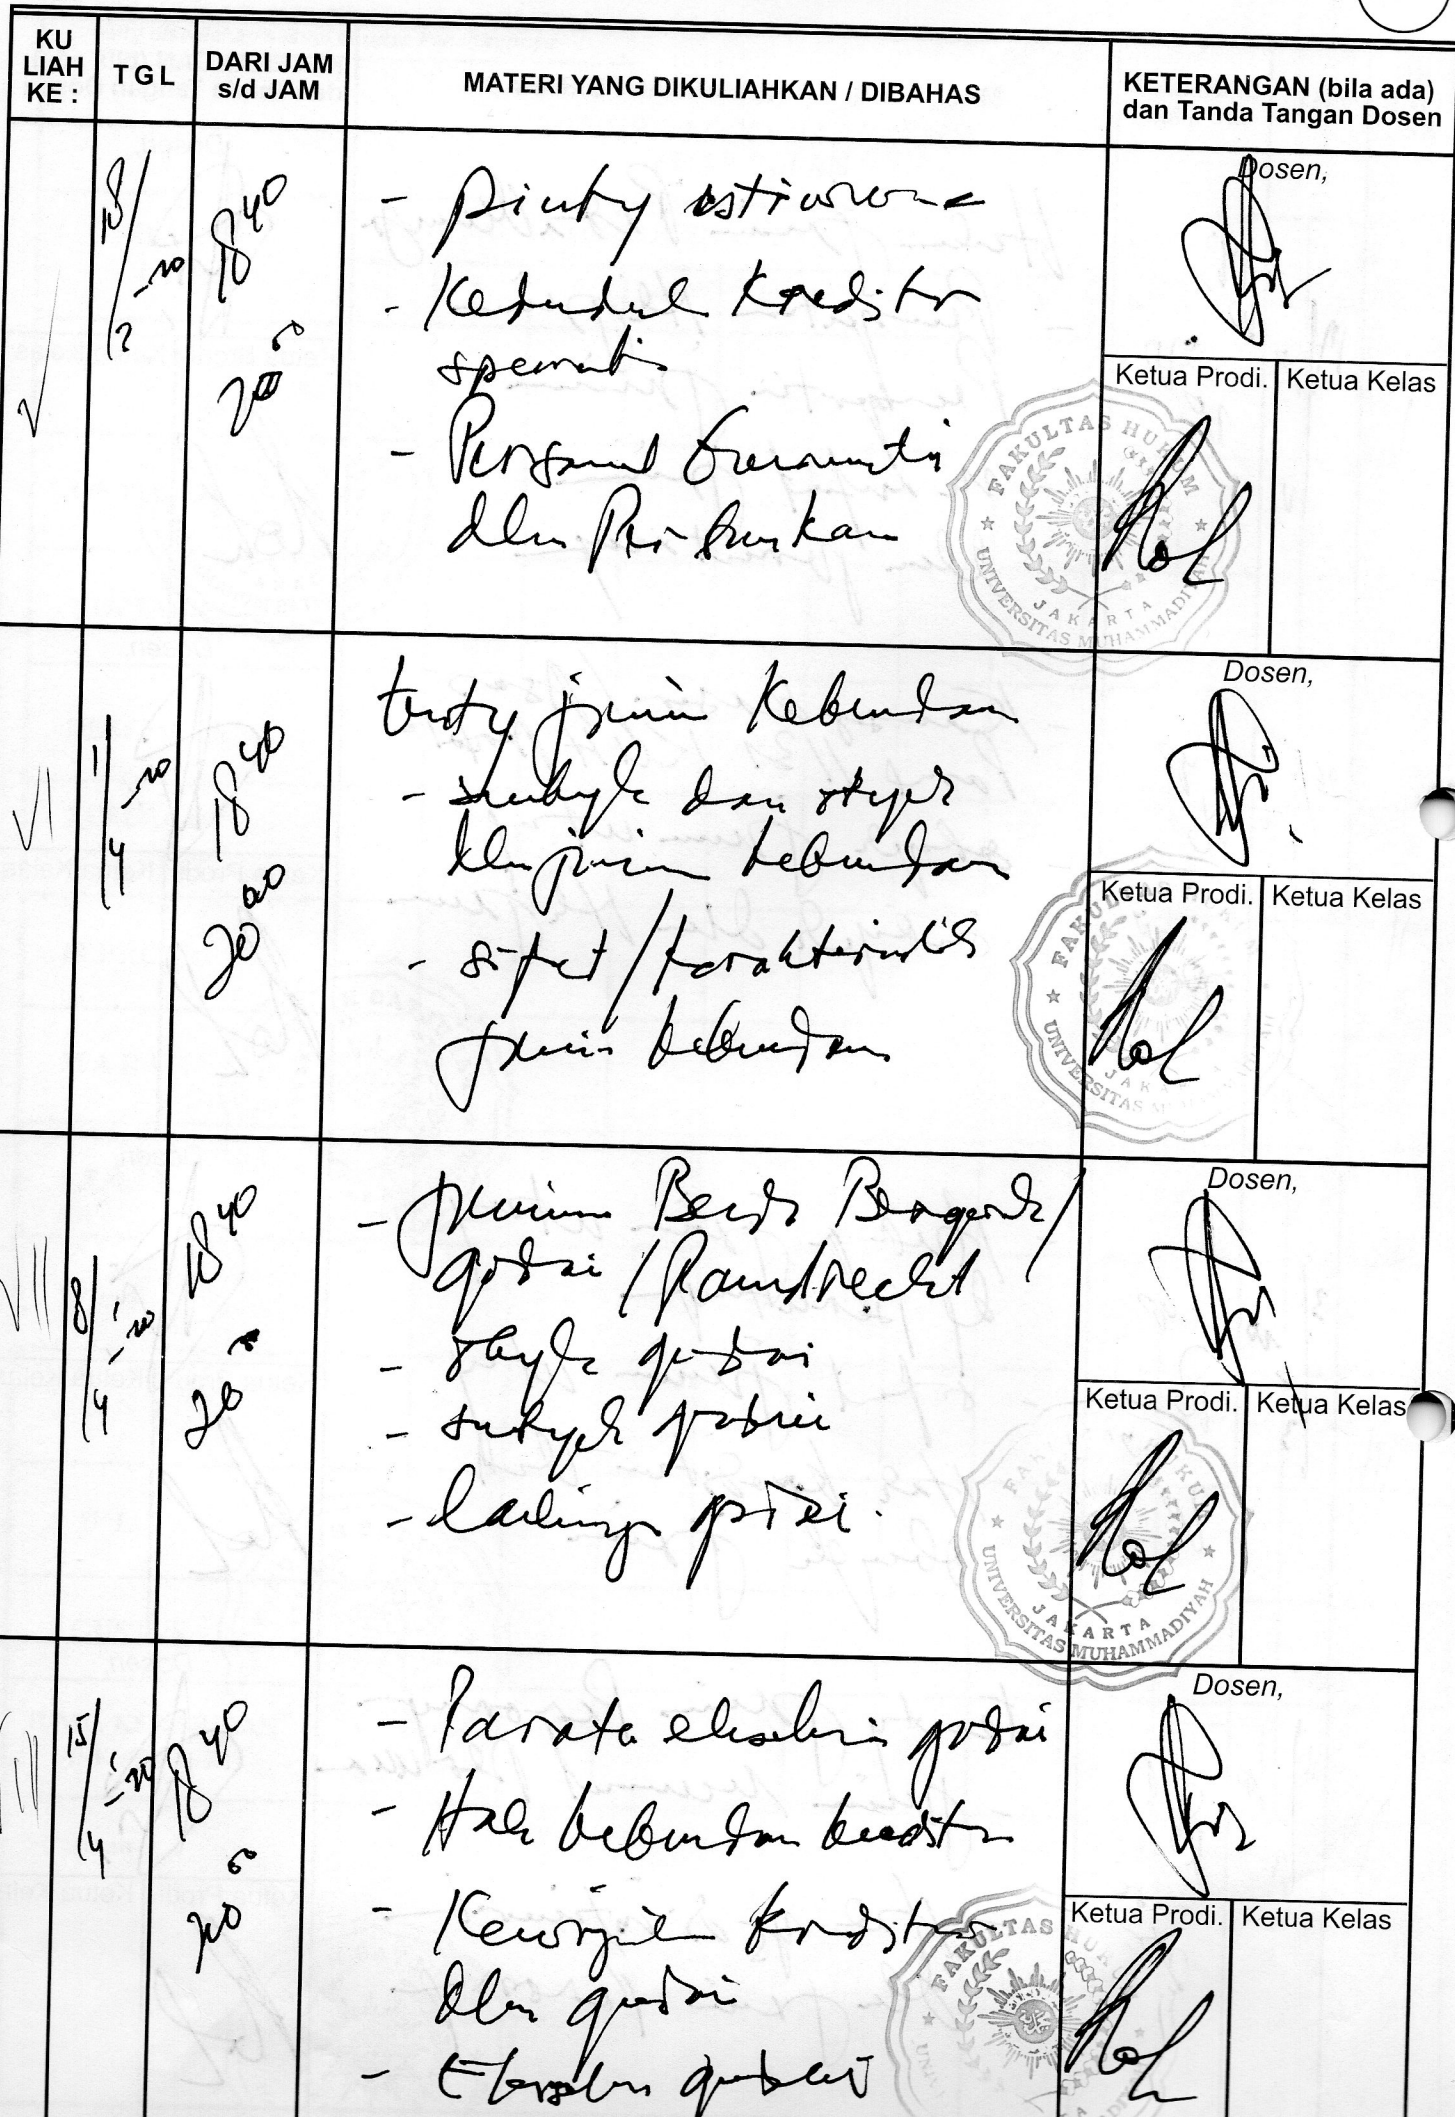 KU
LIAH
KE :
TGL
DARI JAM
s/d JAM
MATERI YANG DIKULIAHKAN / DIBAHAS
KETERANGAN (bila ada)
dan Tanda Tangan Dosen
V
18/3-20
18 40
20 00
- Piutang istimewa
- Kedudukan Kreditor
separatis
- Personal Guarantee
dlm Perbankan
Dosen,
Ketua Prodi.
Ketua Kelas
FAKULTAS HUKUM
UNIVERSITAS MUHAMMADIYAH
JAKARTA
VI
1/4-20
18 40
20 00
jaminan Kebendaan
- subyek dan obyek
dlm jaminan kebendaan
- sifat / karakteristik
jaminan kebendaan
Dosen,
Ketua Prodi.
Ketua Kelas
UNIVERSITAS
VII
8/4-20
18 40
20
- jaminan Benda Bergerak /
gadai / Pandrecht
- obyek gadai
- subyek gadai
- gadai.
Dosen,
Ketua Prodi.
Ketua Kelas
UNIVERSITAS MUHAMMADIYAH
JAKARTA
15/4-20
18 40
20 00
- Parate eksekusi gadai
- Hak kebendaan kreditor
- Kewajiban kreditor
dlm gadai
- Eksekusi gadai
Dosen,
Ketua Prodi.
Ketua Kelas
FAKULTAS